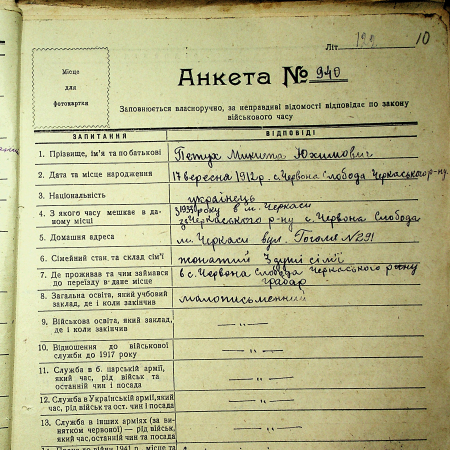 Літ. 199 10
Місце
для
фотокартки
Анкета № 940
Заповнюється власноручно, за неправдиві відомості відповідає по закону
військового часу
ЗАПИТАННЯ ВІДПОВІДІ
1. Прізвище, ім'я та по батькові Петух Микита Юхимович
2. Дата та місце народження 17 вересня 1912 р. с. Червона Слобода Черкаського р-ну.
3. Національність українець
4. З якого часу мешкає в да- З 1933 року в м. Черкаси
ному місці Черкаського р-ну с. Червона Слобода
5. Домашня адреса м. Черкаси вул. Гоголя № 291
6. Сімейний стан, та склад сім'ї жонатий 3 душі сім'ї
7. Де проживав та чим займався в с. Червона Слобода Черкаського р-ну
до переїзду в дане місце грабар
8. Загальна освіта, який учбовий малописьменний
заклад, де і коли закінчив
9. Військова освіта, який заклад, — „ —
де і коли закінчив
10. Відношення до військової — „ —
служби до 1917 року
11. Служба в б. царській армії, — „ —
який час, рід військ та
останній чин і посада
12. Служба в Українській армії, який — „ —
час, рід військ та ост. чин і посада
13. Служба в інших арміях (за ви- — „ —
нятком червоної) — рід військ,
який час, останній чин та посада
до війни 1941 р. місце та